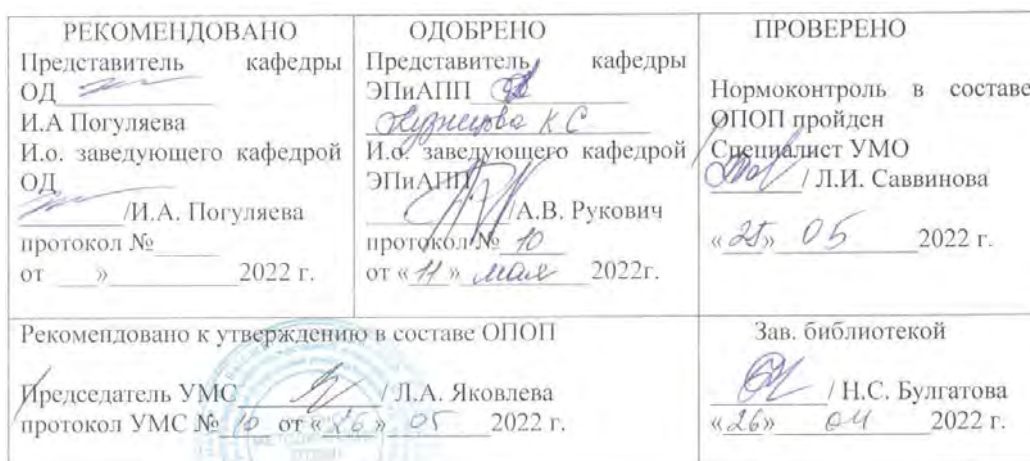 РЕКОМЕНДОВАНО
Представитель кафедры
ОД
И.А Погуляева
И.о. заведующего кафедрой
ОД
/И.А. Погуляева
протокол №
от ___» 2022 г.
ОДОБРЕНО
Представитель кафедры
ЭПиАПП
Кузнецова К С
И.о. заведующего кафедрой
ЭПиАПП
/А.В. Рукович
протокол № 10
от «11» мая 2022г.
ПРОВЕРЕНО
Нормоконтроль в составе
ОПОП пройден
Специалист УМО
/ Л.И. Саввинова
«25» 05 2022 г.
Рекомендовано к утверждению в составе ОПОП
Председатель УМС / Л.А. Яковлева
протокол УМС № 10 от «26» 05 2022 г.
Зав. библиотекой
/ Н.С. Булгатова
«26» 04 2022 г.